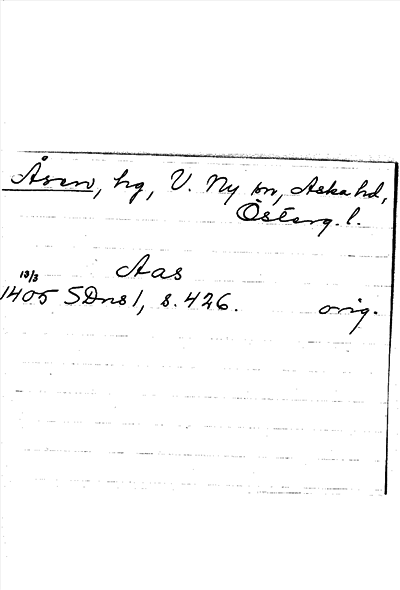 Åsen, hg, V. Ny sn, Aska hd,
Österg. l.
Aas
13/3
1405 SDns 1, s. 426. orig.